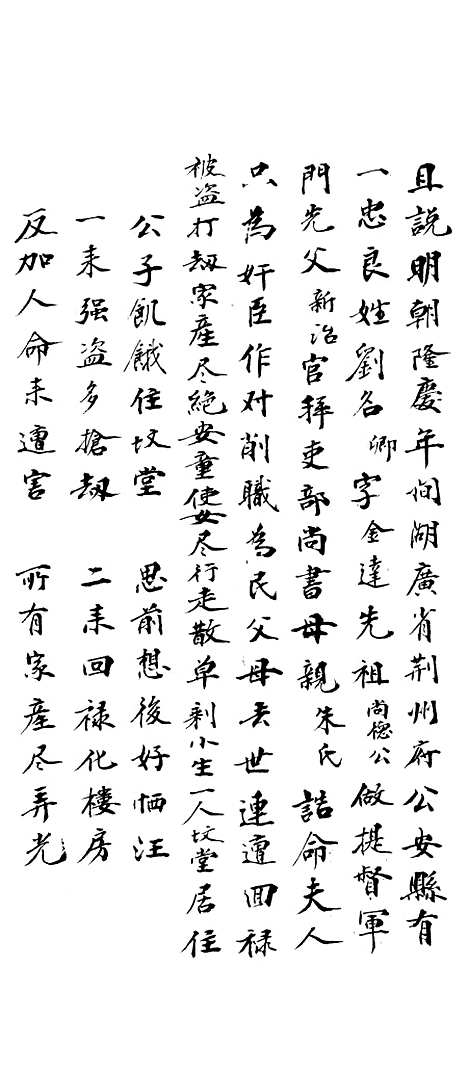 且説明朝隆慶年间湖廣省荆州府公安縣有
一忠良姓劉名卿字金達先祖尚德公做提督軍
門先父新治官拜吏部尚書母親朱氏誥命夫人
只為奸臣作对削職為民父母去世連遭回禄
被盗打刼家産尽絶安童使女尽行走散单剩小生一人坟堂居住
公子飢餓住坟堂　思前想後好恓汪
一耒强盗多搶刼　二耒回禄化樓房
反加人命耒遭害　所有家產尽弄光